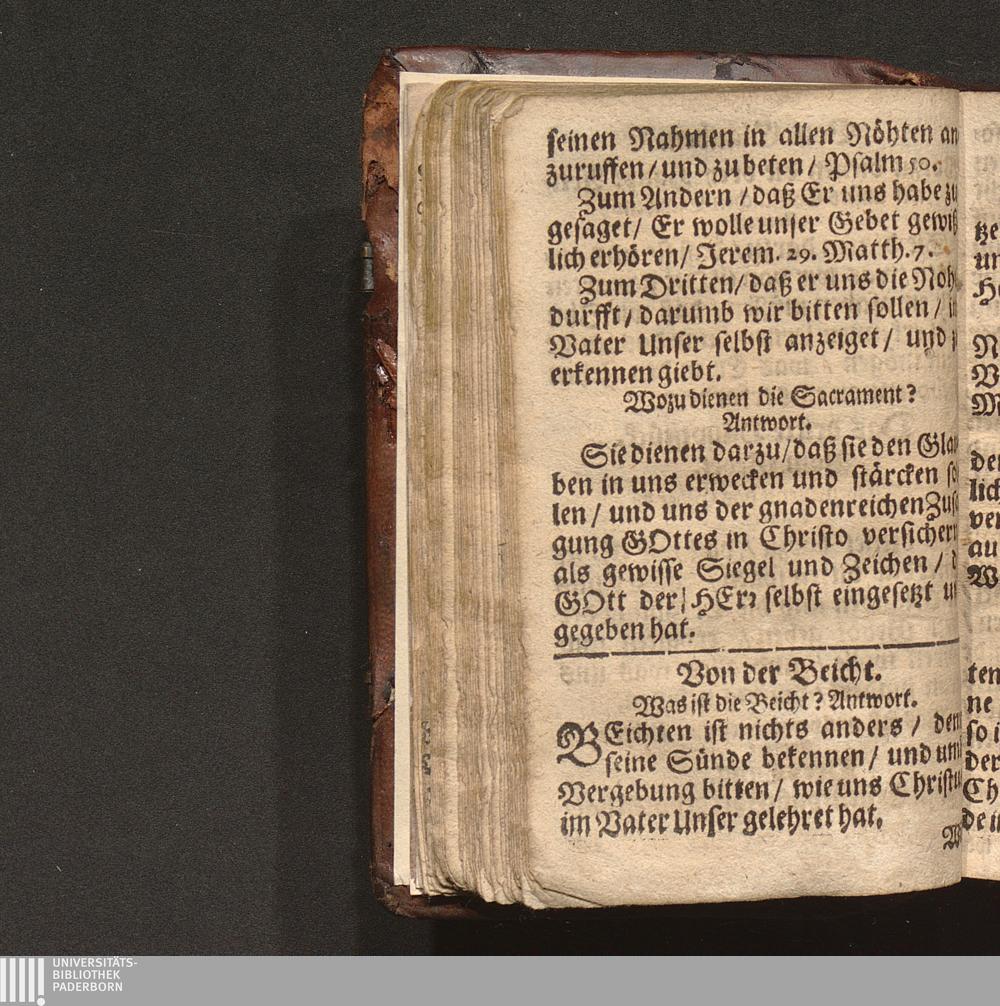 seinen Nahmen in allen Nöhten an
zuruffen / und zu beten / Psalm 50.
Zum Andern / daß Er uns habe zu
gesaget / Er wolle unser Gebet gewiß
lich erhören / Jerem. 29. Matth. 7.
Zum Dritten / daß er uns die Noh
durfft / darumb wir bitten sollen / i
Vater Unser selbst anzeiget / und z
erkennen giebt.
Wozu dienen die Sacrament?
Antwort.
Sie dienen darzu / daß sie den Glau
ben in uns erwecken und stärcken so
len / und uns der gnadenreichen Zusa
gung GOttes in Christo versichern
als gewisse Siegel und Zeichen / d
GOtt der HErr selbst eingesetzt u
gegeben hat.
Von der Beicht.
Was ist die Beicht? Antwort.
BEichten ist nichts anders / den
seine Sünde bekennen / und um
Vergebung bitten / wie uns Christu
im Vater Unser gelehret hat.
W
tze
un
He
N
V
M
den
lich
ver
au
W
ten
ne
so i
der
Ch
de i
UNIVERSITÄTS-
BIBLIOTHEK
PADERBORN